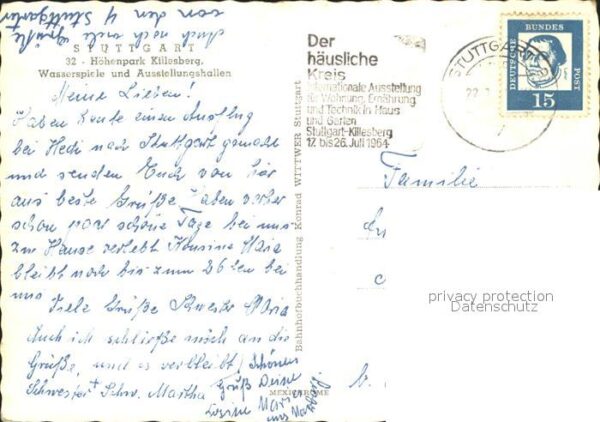 von den 4 Stuttgarter
Auch noch viele Grüße
STUTTGART
32 - Höhenpark Killesberg,
Wasserspiele und Ausstellungshallen
Meine Lieben!
Haben heute einen Ausflug
bei Hedi nach Stuttgart gemacht
und senden Euch von hier
aus beste Grüße. Haben vorher
schon paar schöne Tage bei uns
zu Hause verlebt Kousine Maria
bleibt noch bis zum 26ten bei
uns
Viele Grüße Schwester Maria
Auch ich schließe mich an die
Grüße, und es verbleibt
Schwester + Schw. Martha
Schönen
Gruß Deine
Marie
und
MEXICHROME
Bahnhofbuchhandlung Konrad WITTWER Stuttgart
Der
häusliche
Kreis
Internationale Ausstellung
für Wohnung, Ernährung
und Technik in Haus
und Garten
Stuttgart-Killesberg
17. bis 26. Juli 1964
STUTTGART
22.
DEUTSCHE BUNDES POST
15
Familie
privacy protection
Datenschutz
b.